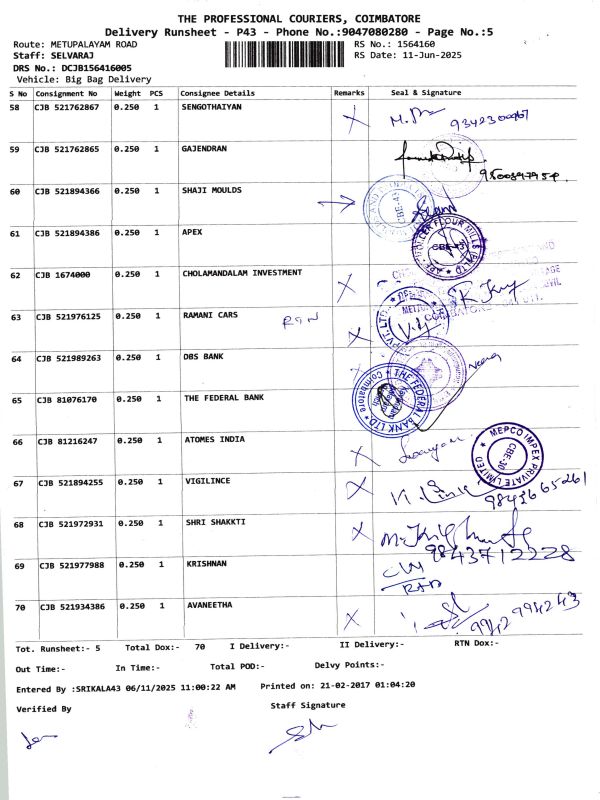 THE PROFESSIONAL COURIERS, COIMBATORE
Delivery Runsheet - P43 - Phone No.:9047080280 - Page No.:5
Route: METUPALAYAM ROAD RS No.: 1564160
Staff: SELVARAJ RS Date: 11-Jun-2025
DRS No.: DCJB156416005
Vehicle: Big Bag Delivery
S No Consignment No Weight PCS Consignee Details Remarks Seal & Signature
58 CJB 521762867 0.250 1 SENGOTHAIYAN
59 CJB 521762865 0.250 1 GAJENDRAN
60 CJB 521894366 0.250 1 SHAJI MOULDS
61 CJB 521894386 0.250 1 APEX
62 CJB 1674000 0.250 1 CHOLAMANDALAM INVESTMENT
63 CJB 521976125 0.250 1 RAMANI CARS
64 CJB 521989263 0.250 1 DBS BANK
65 CJB 81076170 0.250 1 THE FEDERAL BANK
THE FEDERAL BANK LTD * Coimbatore *
66 CJB 81216247 0.250 1 ATOMES INDIA
MEPCO IMPEX PRIVATE LIMITED CBE-30
67 CJB 521894255 0.250 1 VIGILINCE
68 CJB 521972931 0.250 1 SHRI SHAKKTI
9843712228
69 CJB 521977988 0.250 1 KRISHNAN
70 CJB 521934386 0.250 1 AVANEETHA
9942994243
Tot. Runsheet:- 5 Total Dox:- 70 I Delivery:- II Delivery:- RTN Dox:-
Out Time:- In Time:- Total POD:- Delvy Points:-
Entered By :SRIKALA43 06/11/2025 11:00:22 AM Printed on: 21-02-2017 01:04:20
Verified By Staff Signature